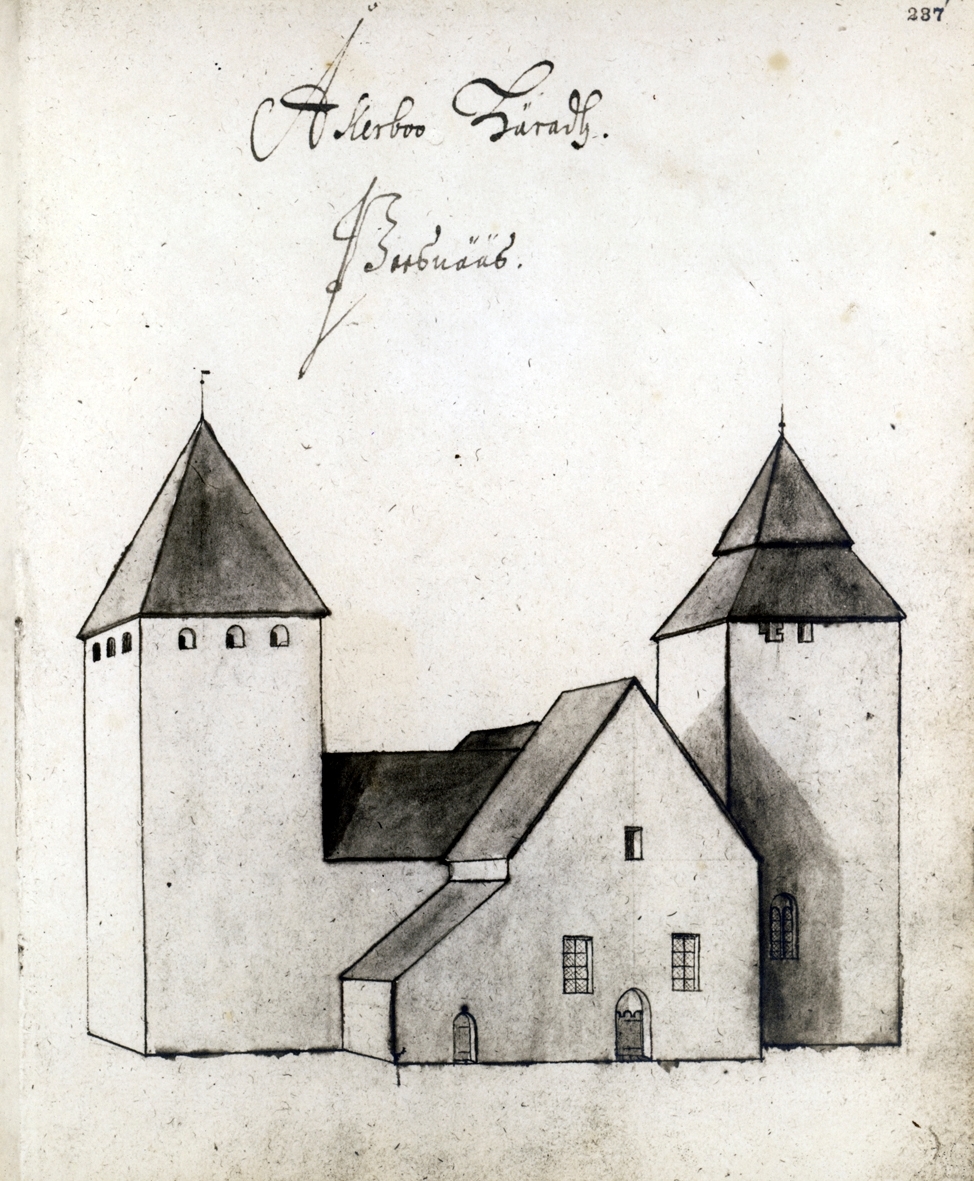 237
Åkerboo Häradh.
Persnääs.